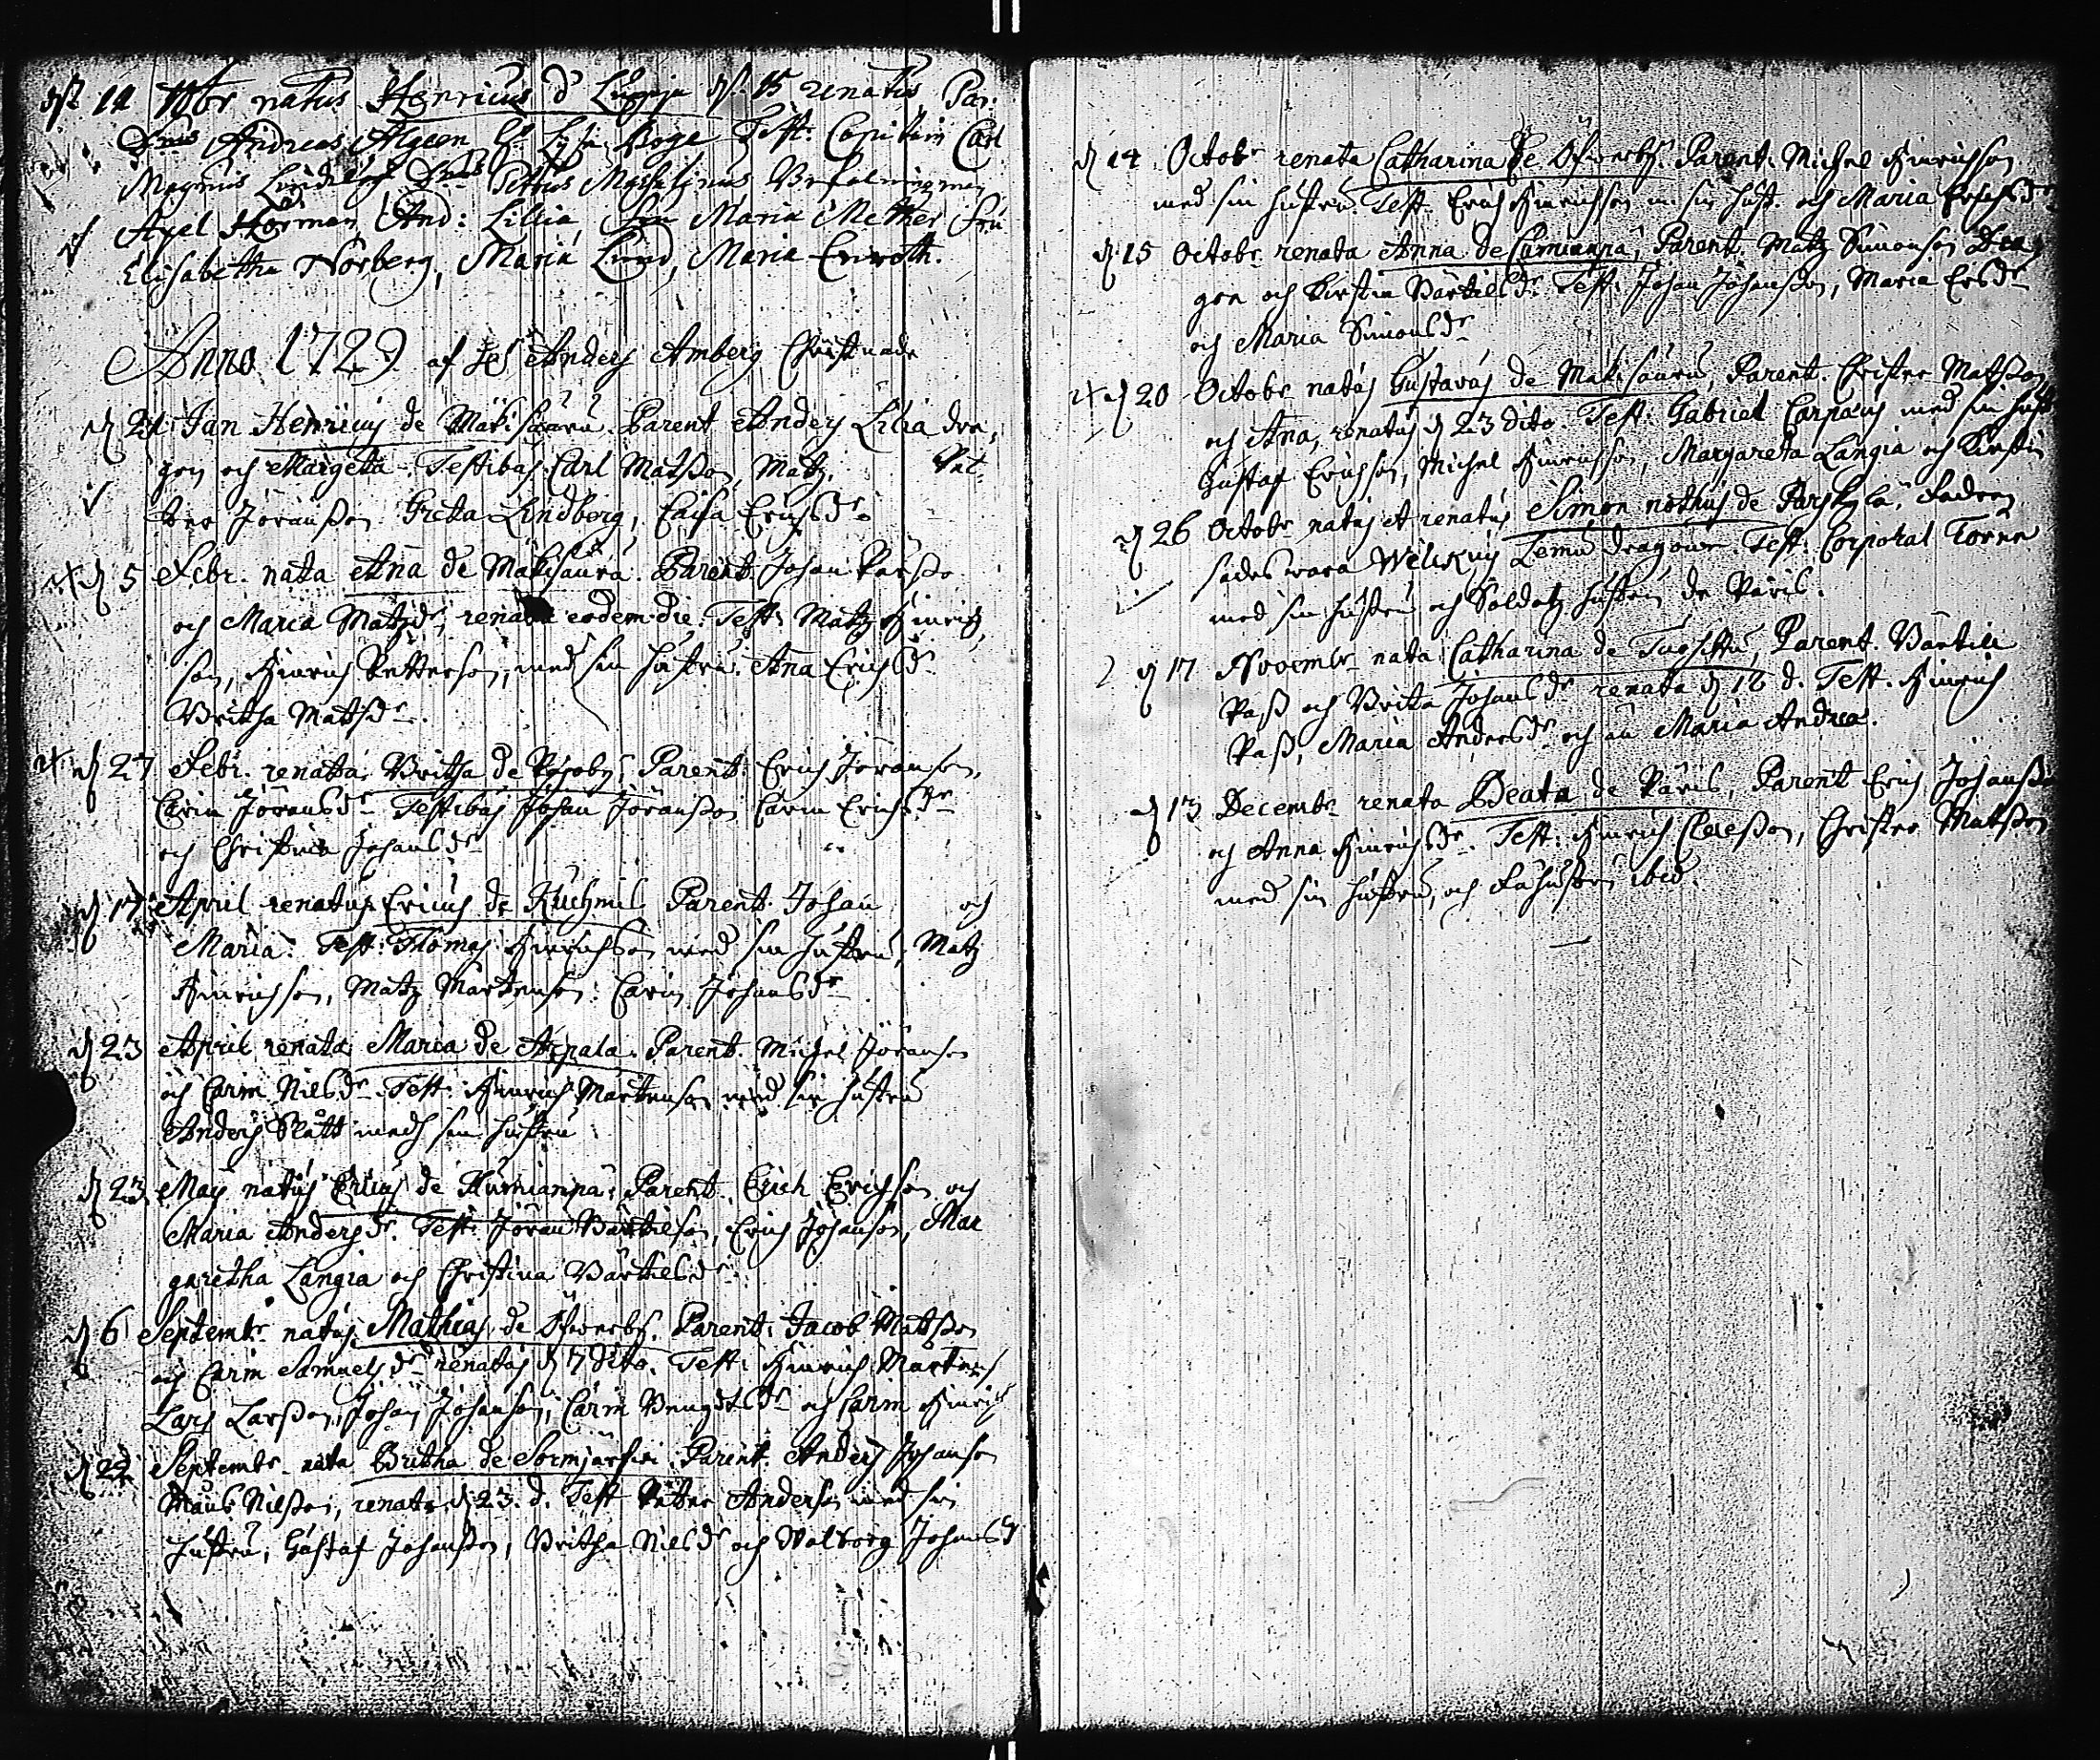 14 natus Henricus d 15 renatus Par:
Dnus Andreas Algeen Boge Test: Capitain Carl
Magnus Dnus Petrus
Axel And: Lillia, Maria Mether fru
Elisabetha Norberg, Maria Lund, Maria
Anno 1729 af Anders Amberg Christnade
d 21 Jan Henricus de Mäkisauru Parent Anders Lilia dra,
gon och Margeta Testibus Carl Matsson, Matz
Jöransson Greta Lindberg, Caisa Erichsdr
d 5 Febr. nata Ana de Mäkisauru. Parent. Johan
och Maria Matzdr, renata eodem die. Test: Matz Hinrich,
son, Hinrich Pettersson, med sin hustru. Ana Erichsdr
Britha Matsdr.
d 27 Febr. renata Britha de Parent. Erich Jöranson,
Carin Jöransdr Testibus Johan Jöransson Carin Erichsdr
och Christina Johansdr
d 17 April renatus Ericus de Kuchmis Parent. Johan och
Maria. Test: Thomas Hinrichson med sin hustru, Matz
Hinrichson, Matz Mårtenson. Carin Johansdr
d 23 April renata Maria de Parent. Michel Jöranson
och Carin Nilsdr. Test. Hinrich Mårtenson med sin hustru
Anders Slått med sin hustru
d 23 May natus Ericus de Kurnianpä. Parent. Erich Erichson och
Maria Andersdr. Test. Jöran Bärtilson, Erich Johanson, Mar
garetha Langia och Christina Bärtilsdr
d 6 Septembr natus Mathias de Öfwerby. Parent. Jacob Matsson
och Carin Samuelsdr renatus d 7 dito. Test. Hinrich Mårtens
Lars Larsson, Johan Johanson, Carin Bengdtsdr och Carin Hinrich
d 22 Septembr nata Britha de Sormjärfwi. Parent. Anders Johanson
Nilsson, renata d 23. d. Test Petter Anderson med sin
hustru, Gustaf Johansson, Britha Nilsdr och Walborg Johansdr
d 14 Octobr renata Catharina de Öfwerby. Parent. Michel Hinrichson
med sin hustru. Test. Erich Hinrichson m. sin hust. och Maria
d 15 Octobr renata Anna de Parent. Matz Simonson Dra
gon och Kirstin Bärtilsdr. Test. Johan Johansson, Maria Ersdr
och Maria Simonsdr
d 20 Octobr natus Gustavus de Mäkisauru, Parent. Christer Matsson
och Ana, renatus d 23 dito. Test. Gabriel med sin hust
Gustaf Erichson, Michel Hinrichson, Margareta Langia och Kirstin
d 26 Octobr natus et renatus Simon nothus de Parskylä. Fadren
sades wara Lemu dragoun. Test. Corporal Torn
med sin hustru och Soldatz hustrun de Päris.
d 17 Novembr nata Catharina de Parent. Bärtill
Pass och Brita Johansdr renata d 18 d. Test. Hinrich
Pass, Maria Andersdr och än Maria Andrea.
d 13 Decembr renata Beata de Päris, Parent Erich Johansson
och Anna Hinrichsdr. Test. Hinrich Christer Matsson
med sin hustru, och ibid.